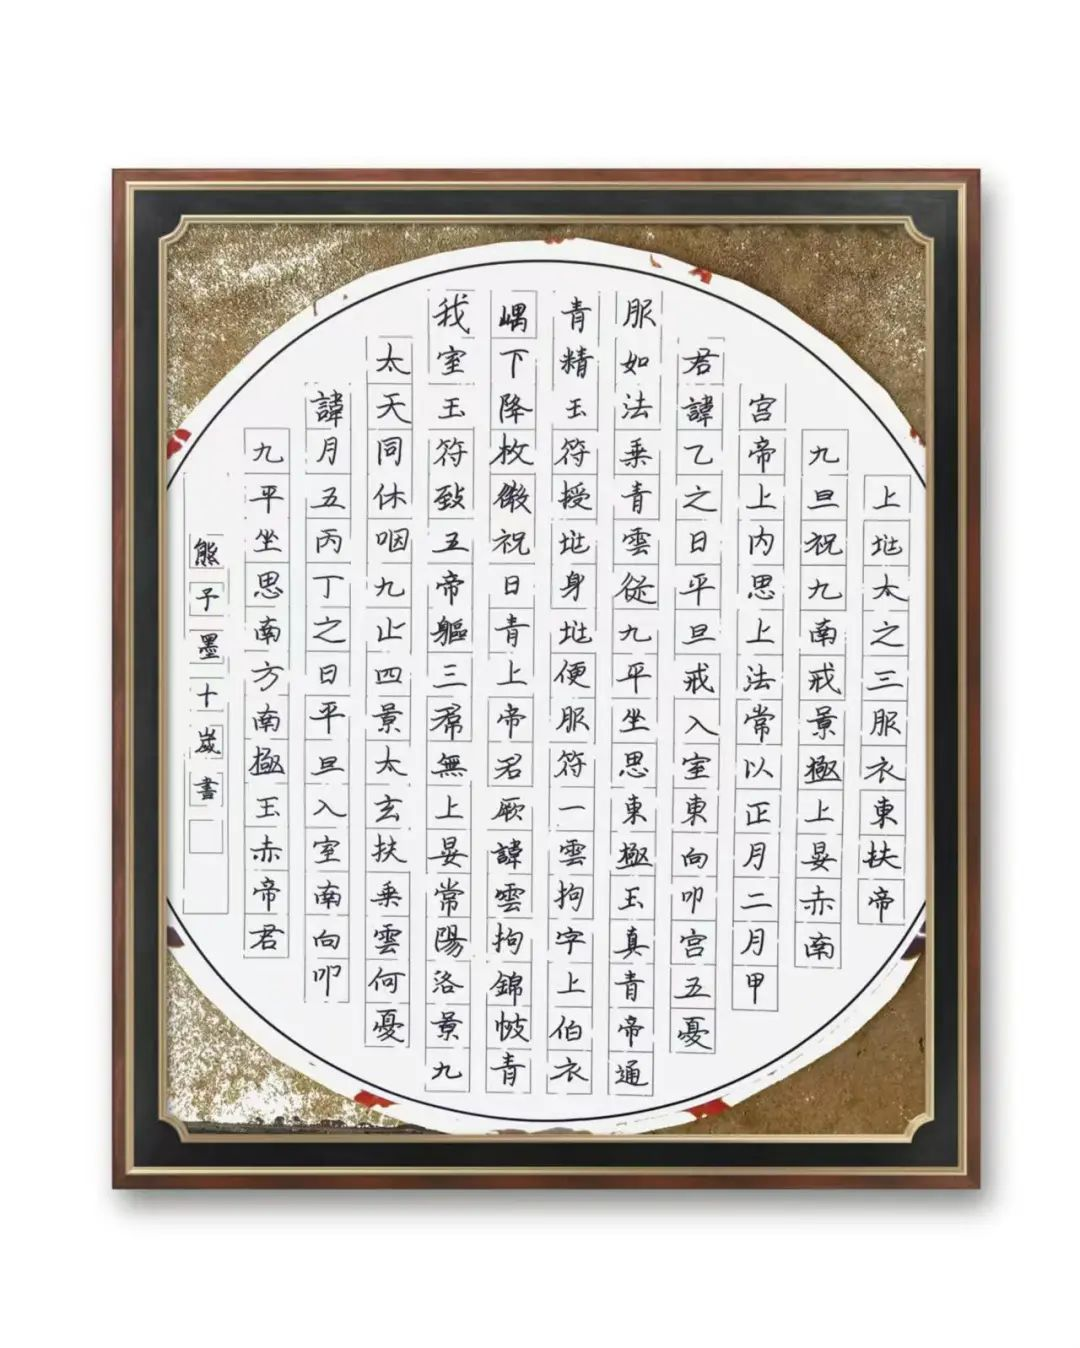 上地太之三服衣東扶帝
九旦祝九南戒景極上晏赤南
宫帝上内思上法常以正月二月甲
君諱乙之日平旦戒入室東向叩宫五憂
服如法乗青雲從九平坐思東極玉真青帝通
青精玉符授地身地便服符一雲拘字上伯衣
嵎下降枚儌祝日青上帝君厥諱雲拘錦帔青
我室玉符致五帝軀三希無上晏常陽洛景九
太天同休咽九止四景太玄扶乗雲何憂
諱月五丙丁之日平旦入室南向叩
九平坐思南方南極玉赤帝君
熊子墨十嵗書